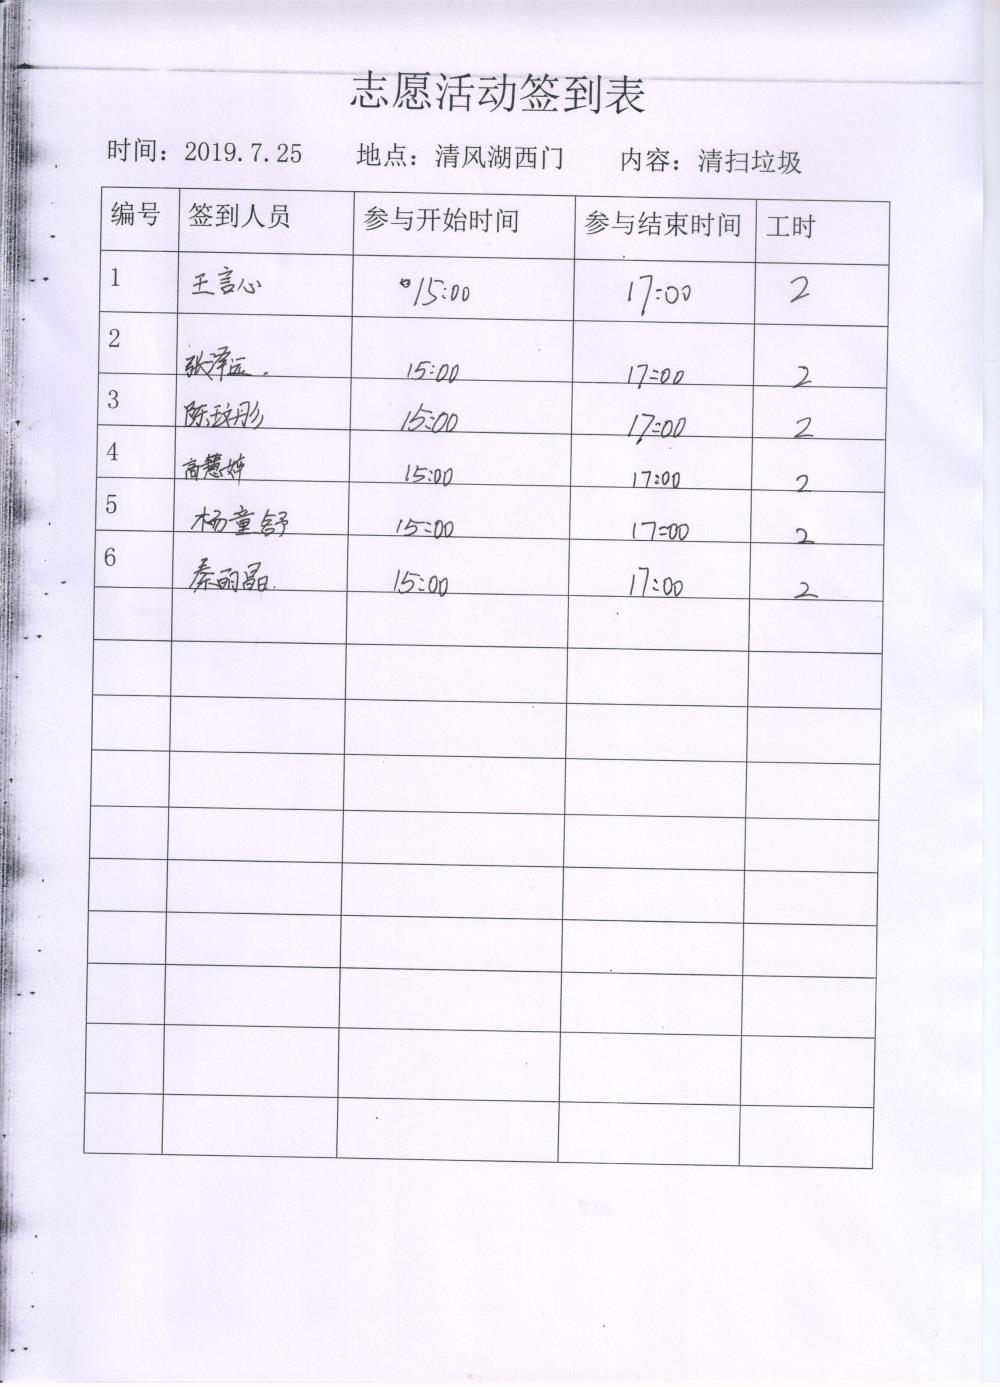 志愿活动签到表
时间：2019.7.25 地点：清风湖西门 内容：清扫垃圾
编号 签到人员 参与开始时间 参与结束时间 工时
1 王言心 15:00 17:00 2
2 张泽远. 15:00 17:00 2
3 陈玟彤 15:00 17:00 2
4 高慧婷 15:00 17:00 2
5 杨童舒 15:00 17:00 2
6 秦丽晶. 15:00 17:00 2